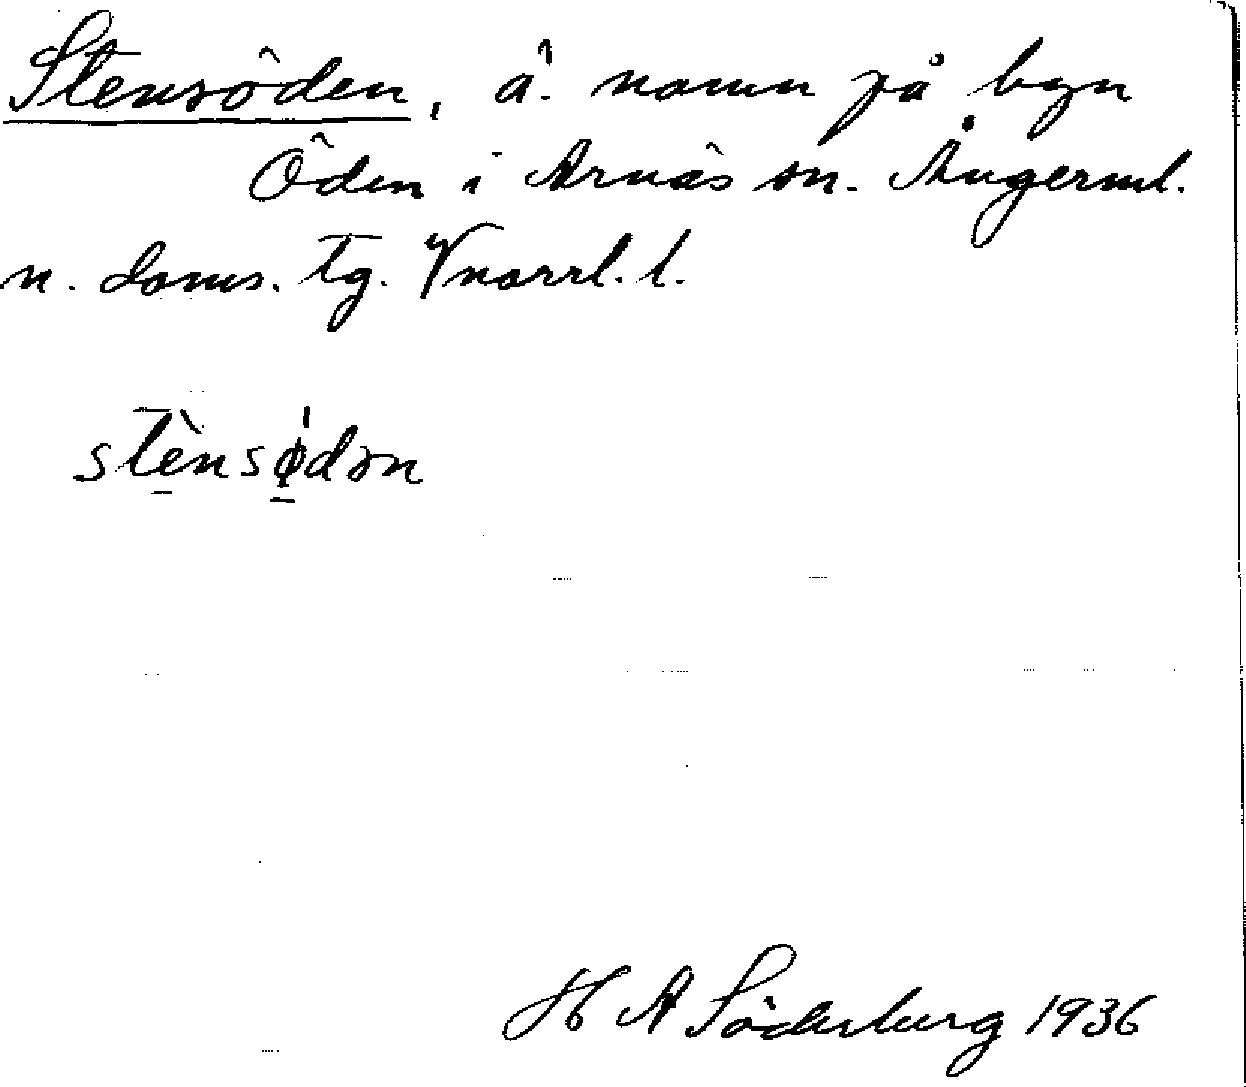 Stensöden, ä. namn på byn
Öden i Arnäs sn. Ångerml.
n. doms. tg. Vnorrl. l.
stènsødən
H A Söderberg 1936